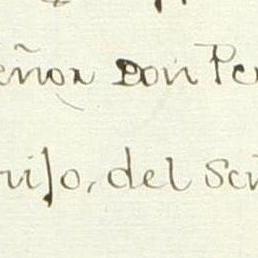 eñor Don Pe
hijo, del Señ